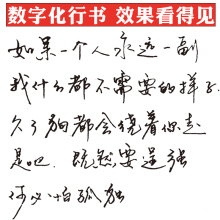 数字化行书 效果看得见
如果一个人永远一副
我什么都不需要的样子.
久了狗都会绕着你走
是吧. 既然要逞强
何必怕孤独